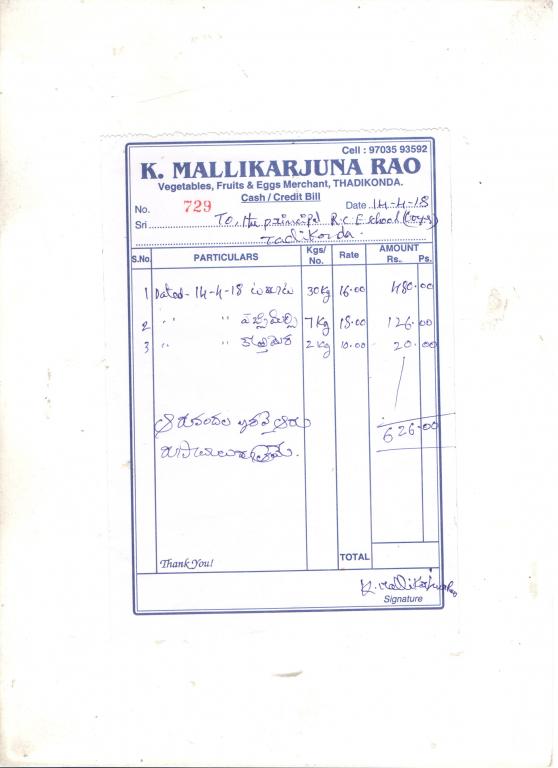 Cell : 97035 93592
K. MALLIKARJUNA RAO
Vegetables, Fruits & Eggs Merchant, THADIKONDA.
Cash / Credit Bill
No. 729 Date 14-4-18
Sri To, the principal R.C.E school (Boys)
Tadikonda.
S.No. PARTICULARS Kgs/No. Rate AMOUNT Rs. Ps.
1 Dated 14-4-18 టమాట 30 Kg 16.00 480.00
2 " " పచ్చిమిర్చి 7 Kg 18.00 126.00
3 " " కొత్తిమీర 2 Kg 10.00 20.00
626.00
ఆరువందల ఇరవై ఆరు
రూపాయలు మాత్రమే.
Thank You!
TOTAL
K. Mallikarjuna Rao
Signature